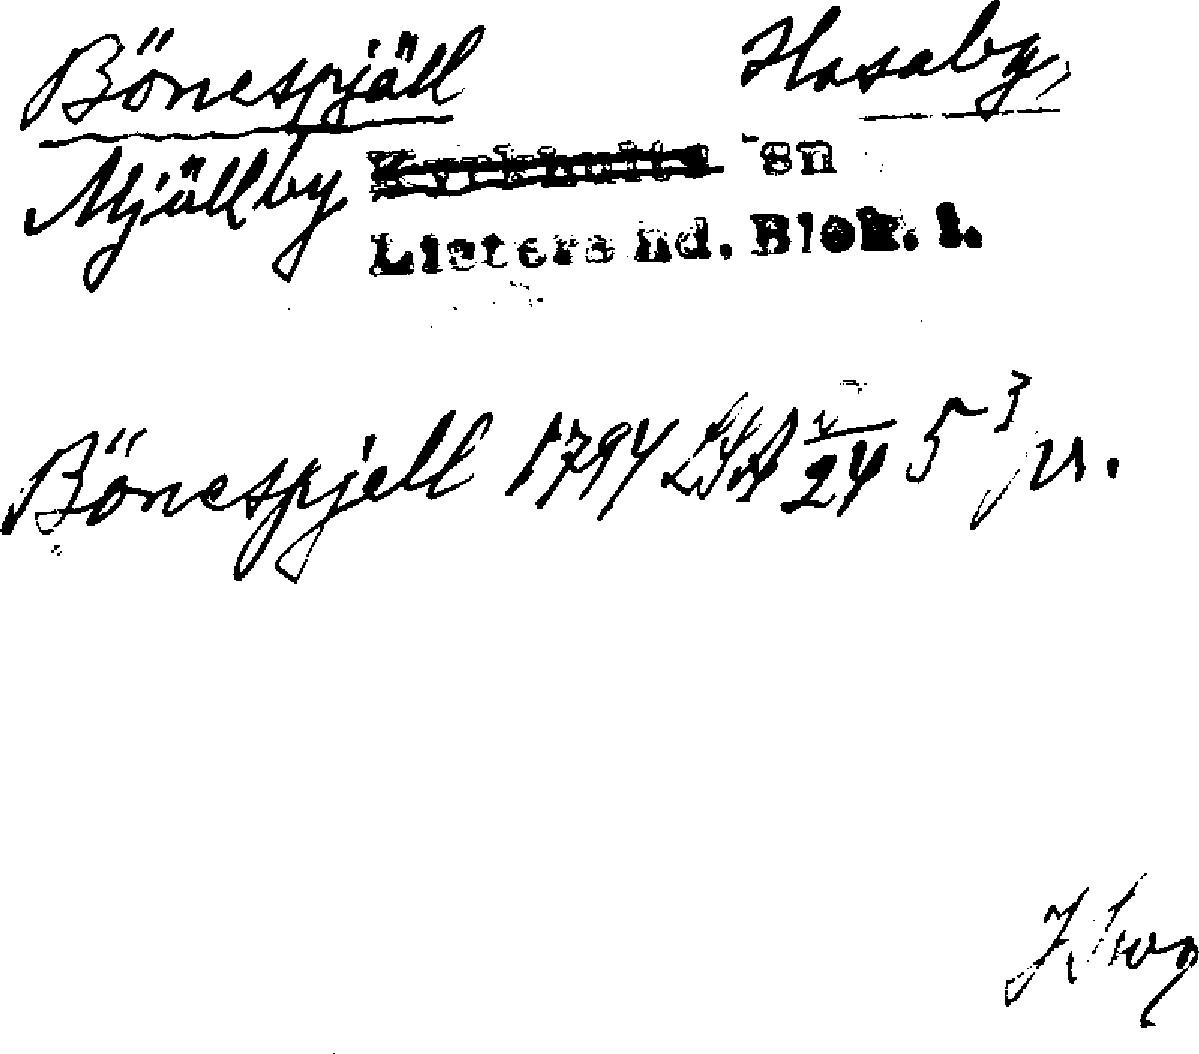 Bönespjäll Hosaby,
Mjällby Kyrkhults sn
Listers hd. Blek. l.
Bönespjell 1794 LSA V/24 5³ jr.